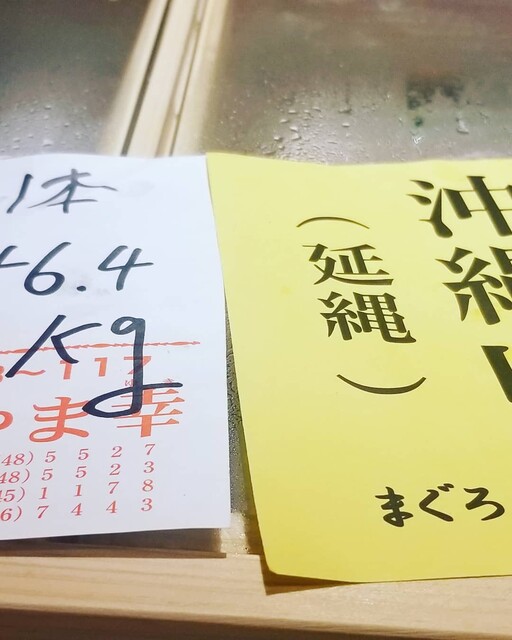 1本
46.4
Kg
~117
やま幸
48) 5527
48) 5523
45) 1178
6) 7443
沖縄
(延縄)
まぐろ